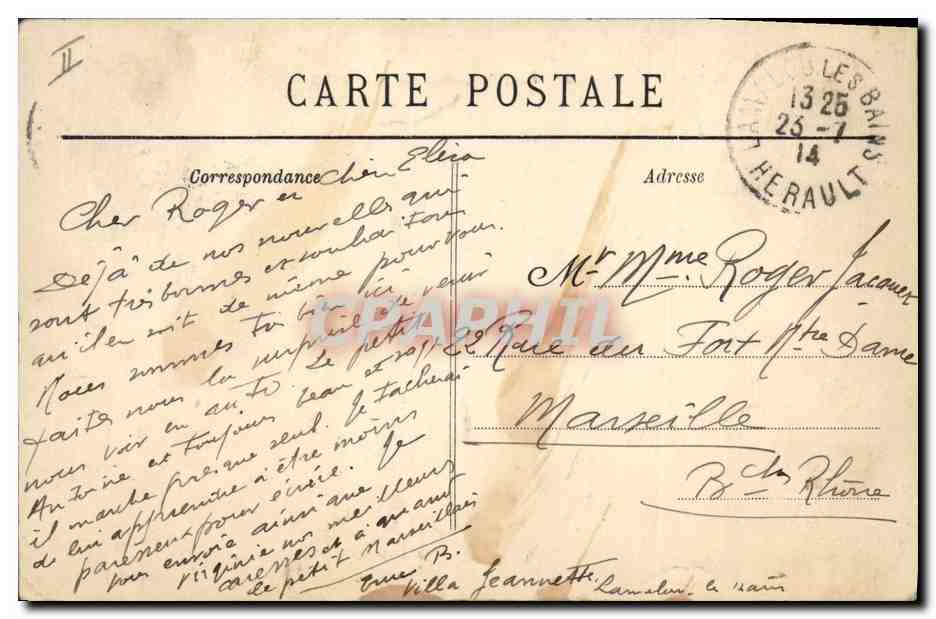 II
CARTE POSTALE
LAMALOU LES BAINS
13 25
23 -7
14
HERAULT
Correspondance
Adresse
Cher Roger et chère Elisa
Déjà de nos nouvelles qui
sont très bonnes et souhaitons
qu'il en soit de même pour vous.
Nous sommes très bien ici
faites nous la surprise de venir
nous voir en auto. Le petit
Antoine est toujours beau et sage
il marche presque seul. Je tacherai
de lui apprendre à être moins
paresseux pour écrire. Je
vous envoie ainsi que
Virginie nos meilleures
caresses et à quand
le petit Marseillais
B.
Villa Jeannette. Lamalou-le bains
Mr Mme Roger Jacques
22 Rue du Fort Ntre Dame
Marseille
Bches Rhône
CPAPHIL